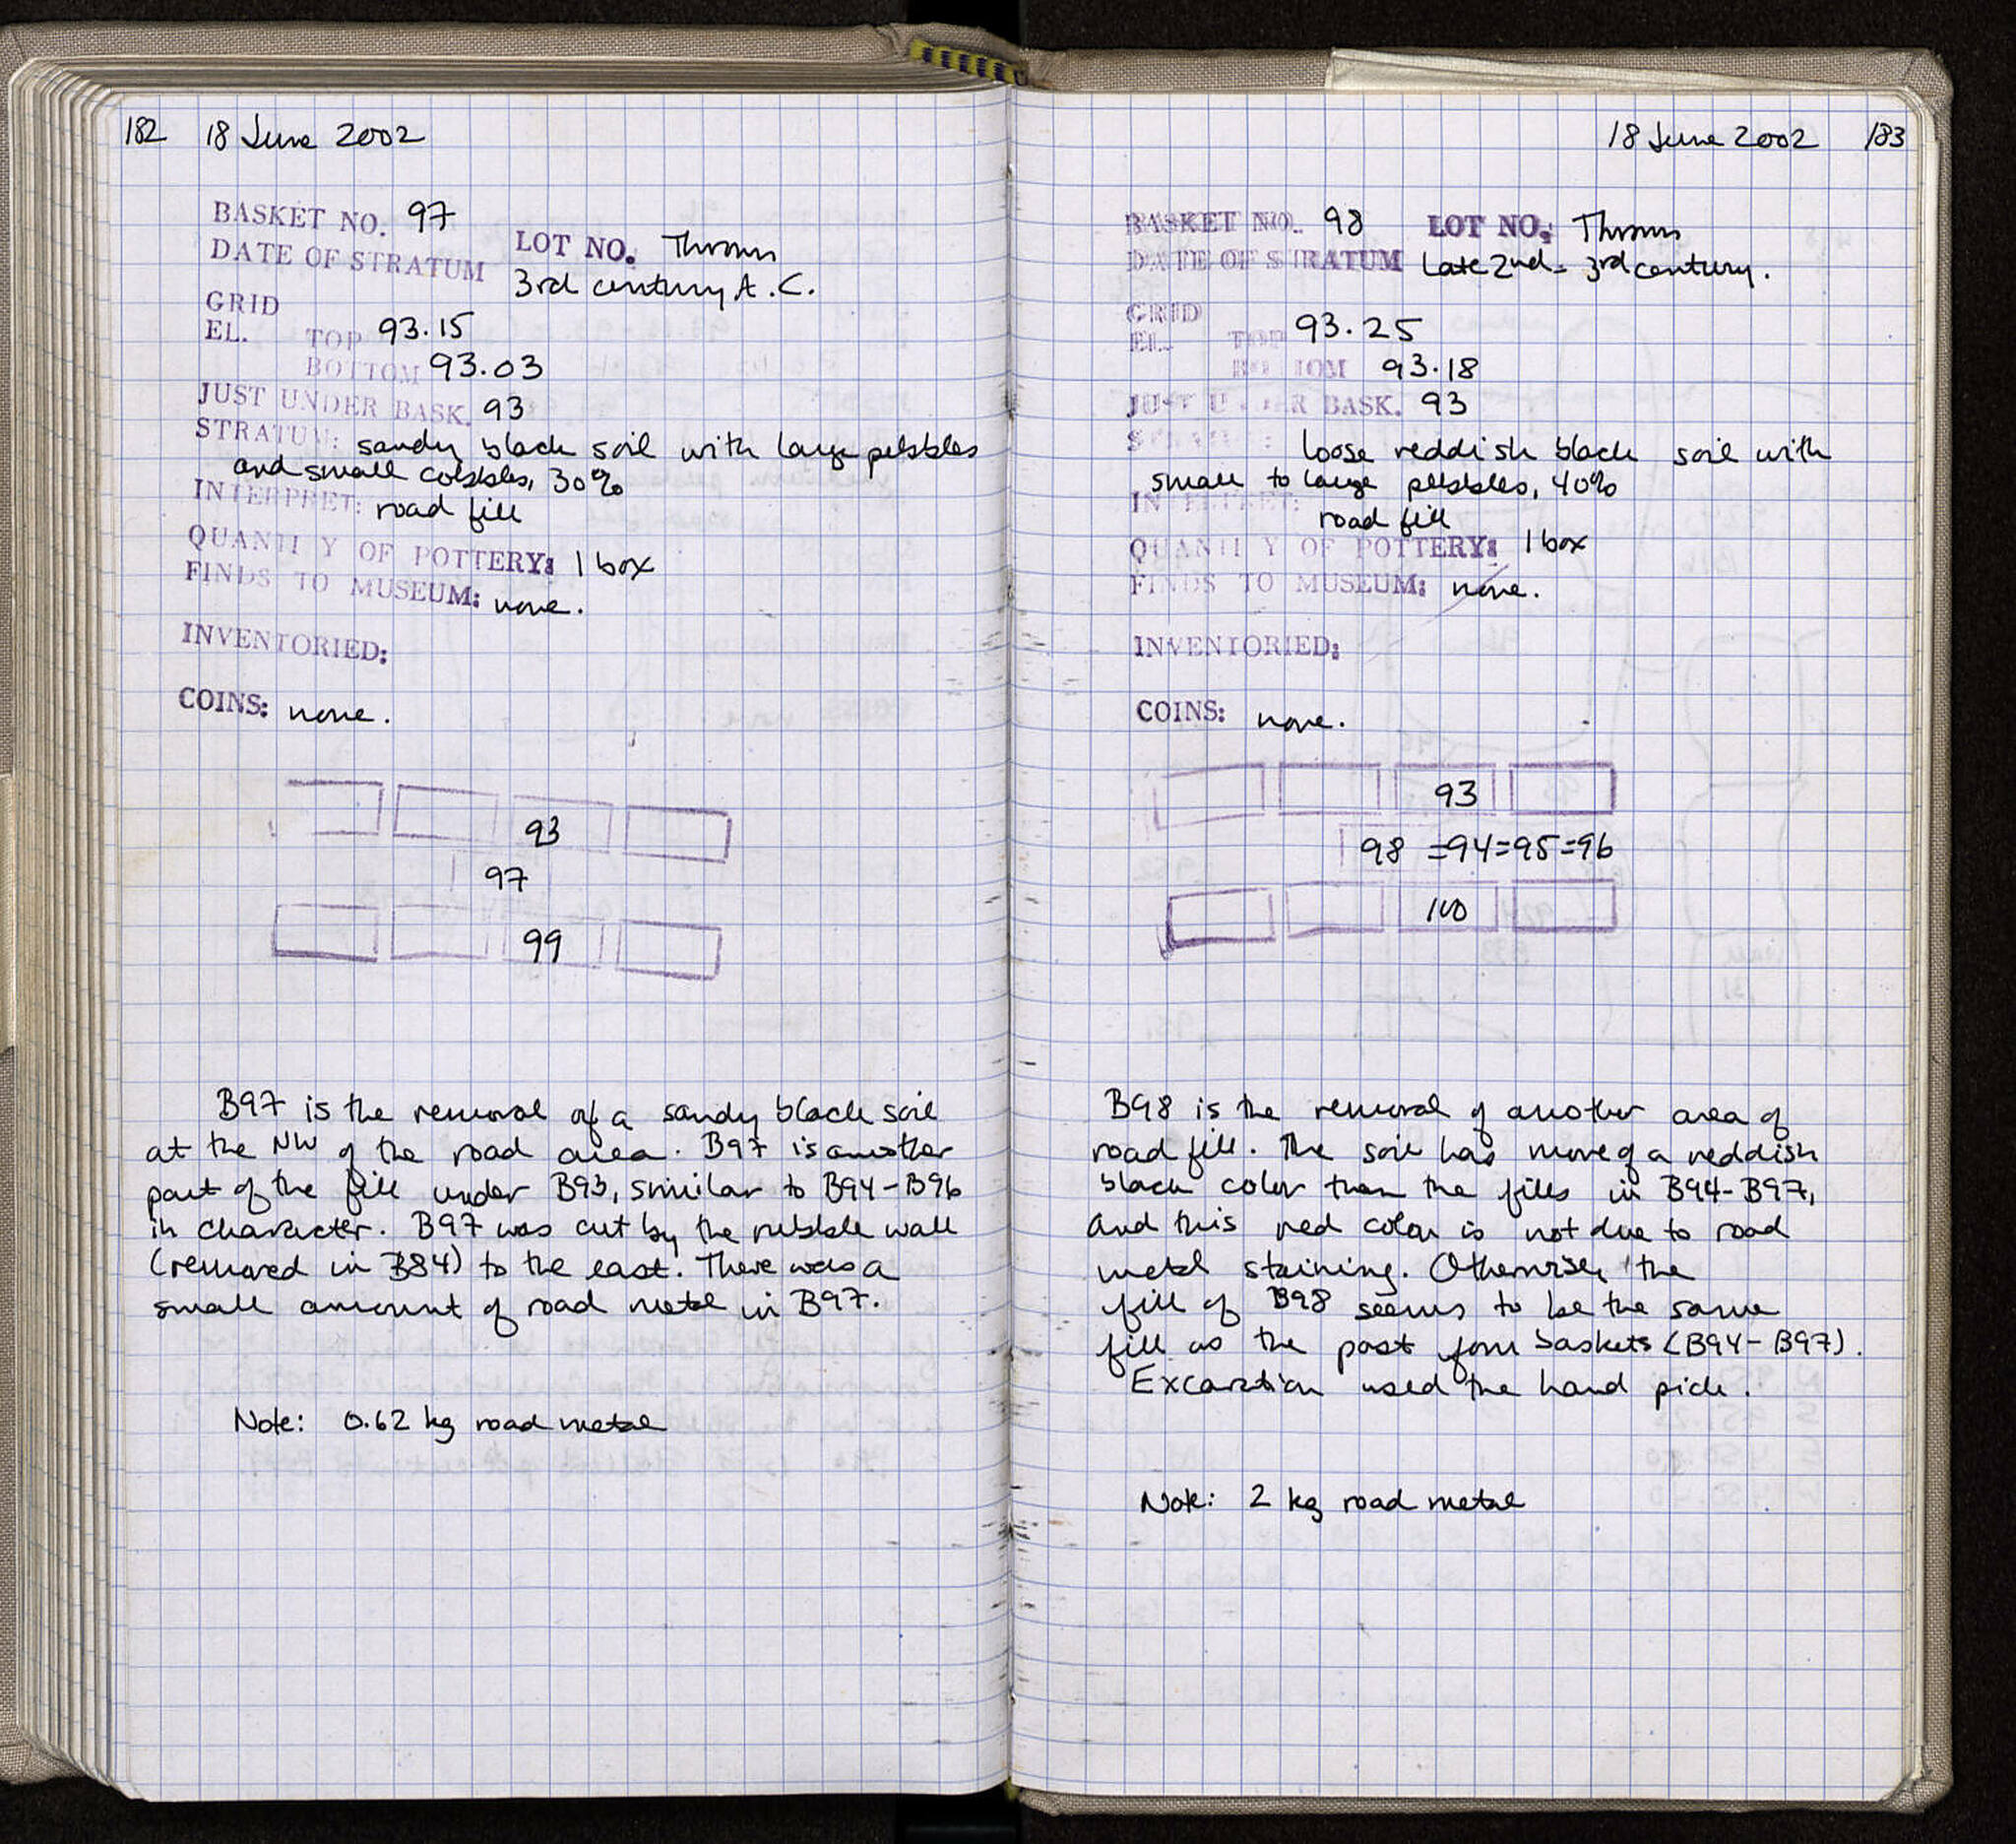 182 18 June 2002
BASKET NO. 97
LOT NO. Thrown
DATE OF STRATUM
3rd century A.C.
GRID
EL. TOP 93.15
BOTTOM 93.03
JUST UNDER BASK. 93
STRATUM: sandy black soil with large pebbles
and small cobbles, 30%
INTERPRET: road fill
QUANTITY OF POTTERY: 1 box
FINDS TO MUSEUM: none.
INVENTORIED:
COINS: none.
93
97
99
B97 is the removal of a sandy black soil
at the NW of the road area. B97 is another
part of the fill under B93, similar to B94-B96
in character. B97 was cut by the rubble wall
(removed in B84) to the east. There was a
small amount of road metal in B97.
Note: 0.62 kg road metal
18 June 2002 183
BASKET NO. 98 LOT NO. Thrown
DATE OF STRATUM Late 2nd - 3rd century.
GRID
EL. TOP 93.25
BOTTOM 93.18
JUST UNDER BASK. 93
STRATUM: loose reddish black soil with
small to large pebbles, 40%
INTERPRET:
road fill
QUANTITY OF POTTERY: 1 box
FINDS TO MUSEUM: none.
INVENTORIED:
COINS: none.
93
98 =94=95=96
100
B98 is the removal of another area of
road fill. The soil has more of a reddish
black color than the fills in B94-B97,
and this red color is not due to road
metal staining. Otherwise, the
fill of B98 seems to be the same
fill as the past four baskets (B94-B97).
Excavation used the hand pick.
Note: 2 kg road metal